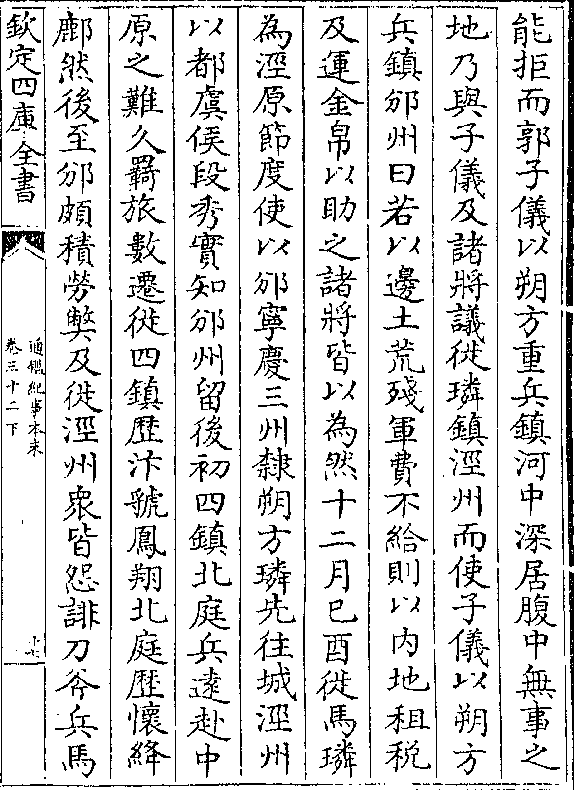 能拒而郭子儀以朔方重兵鎮河中深居腹中無事之
地乃與子儀及諸將議徙璘鎮涇州而使子儀以朔方
兵鎮邠州曰若以邊土荒殘軍費不給則以内地租税
及運金帛以助之諸將皆以為然十二月已酉徙馬璘
為涇原節度使以邠寧慶三州隸朔方璘先往城涇州
以都虞侯段秀實知邠州留後初四鎮北庭兵遠赴中
原之難久羈旅數遷徙四鎮歴汴虢鳳翔北庭歴懷絳
鄜然後至邠頗積勞弊及徙涇州衆皆怨誹刀斧兵馬
欽定四庫全書
通鑑紀事本末
卷三十二下
十七